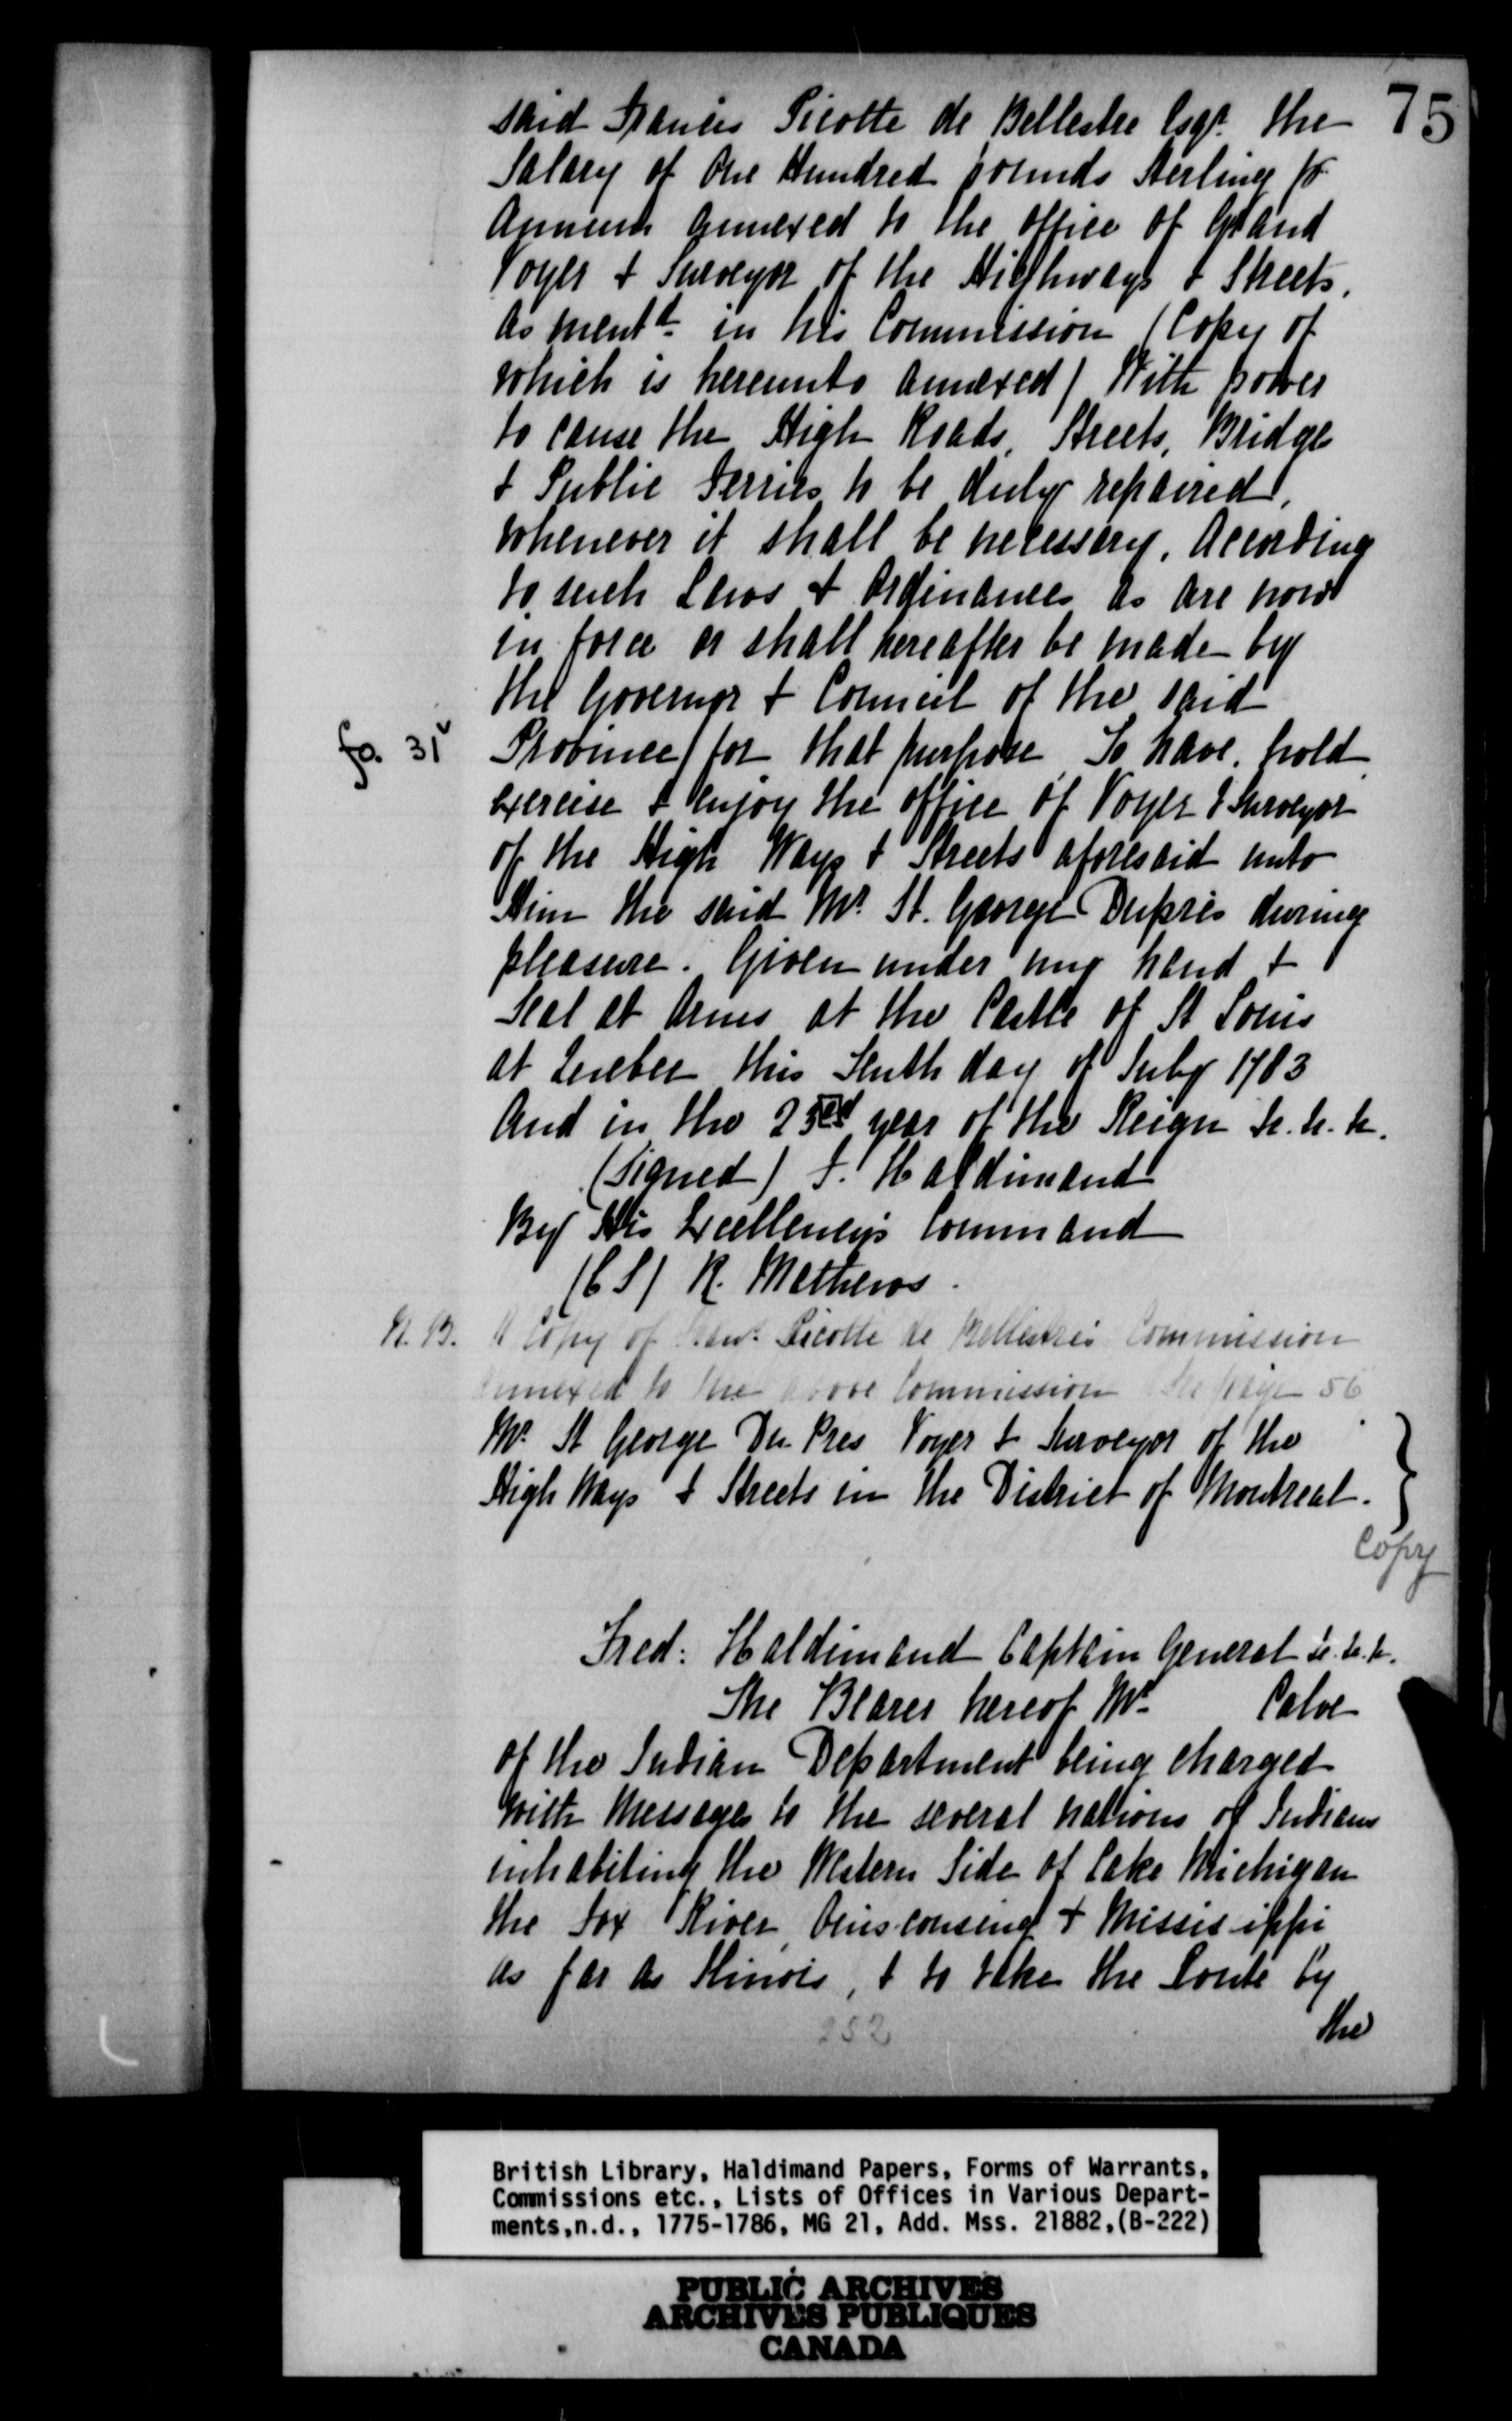 75
said Francis Picotte de Bellestre Esqr. the
Salary of One Hundred pounds Sterling pr
Annum annexed to the office of Grand
Voyer & Surveyor of the Highways & Streets,
as mentd. in his Commission (Copy of
which is hereunto annexed) With power
to cause the High Roads, Streets, Bridges
& Public Ferries to be duly repaired,
whenever it shall be necessary, According
to such Laws & Ordinances as are now
in force or shall hereafter be made by
the Governor & Council of the said
fo. 31v Province for that purpose To have, hold
exercise & enjoy the office of Voyer & Surveyor
of the High Ways & Streets aforesaid unto
Him the said Mr. St. George Duprés during
pleasure. Given under my hand &
Seal at Arms at the Castle of St Louis
at Quebec this Tenth day of July 1783
And in the 23rd year of the Reign &c. &c. &c.
(Signed) F. Haldimand
By His Excellency's Command
(CS) R. Mathews.
N.B. A Copy of Frans. Picotte de Bellestres Commission
annexed to the above Commission See page 56
Mr. St George Du Pres Voyer & Surveyor of the
High Ways & Streets in the District of Montreal. }
Copy
Fred: Haldimand Captain General &c. &c. &c.
The Bearer hereof Mr. Calve
of the Indian Department being charged
with Messages to the several nations of Indians
inhabiting the Western Side of Lake Michigan
the Fox River, Ouisconsing & Missisippi
as far as Ilinois, & to take the Route by
the
252
British Library, Haldimand Papers, Forms of Warrants,
Commissions etc., Lists of Offices in Various Depart-
ments,n.d., 1775-1786, MG 21, Add. Mss. 21882,(B-222)
PUBLIC ARCHIVES
ARCHIVES PUBLIQUES
CANADA